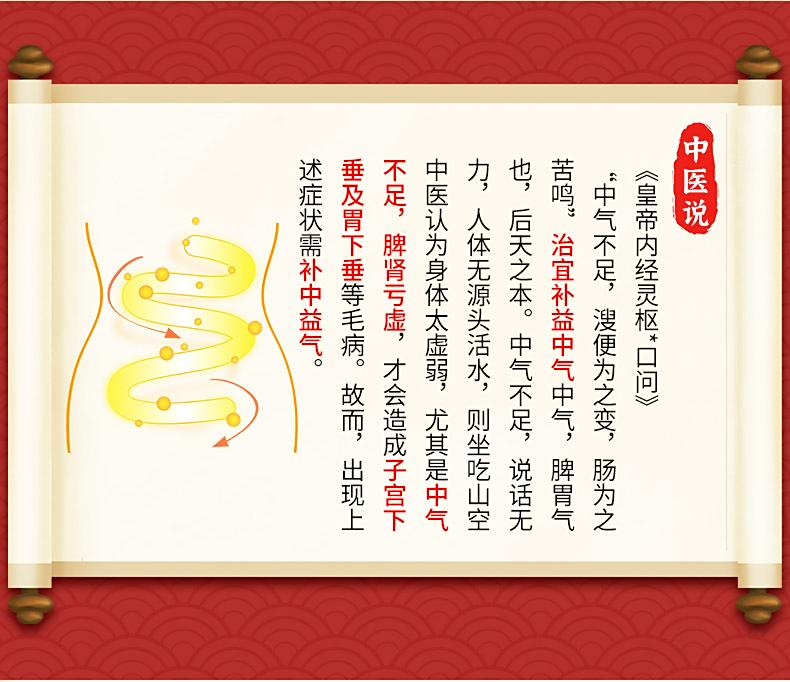 中医说
《皇帝内经灵枢*口问》
“中气不足，溲便为之变，肠为之
苦鸣”治宜补益中气中气，脾胃气
也，后天之本。中气不足，说话无
力，人体无源头活水，则坐吃山空
中医认为身体太虚弱，尤其是中气
不足，脾肾亏虚，才会造成子宫下
垂及胃下垂等毛病。故而，出现上
述症状需补中益气。